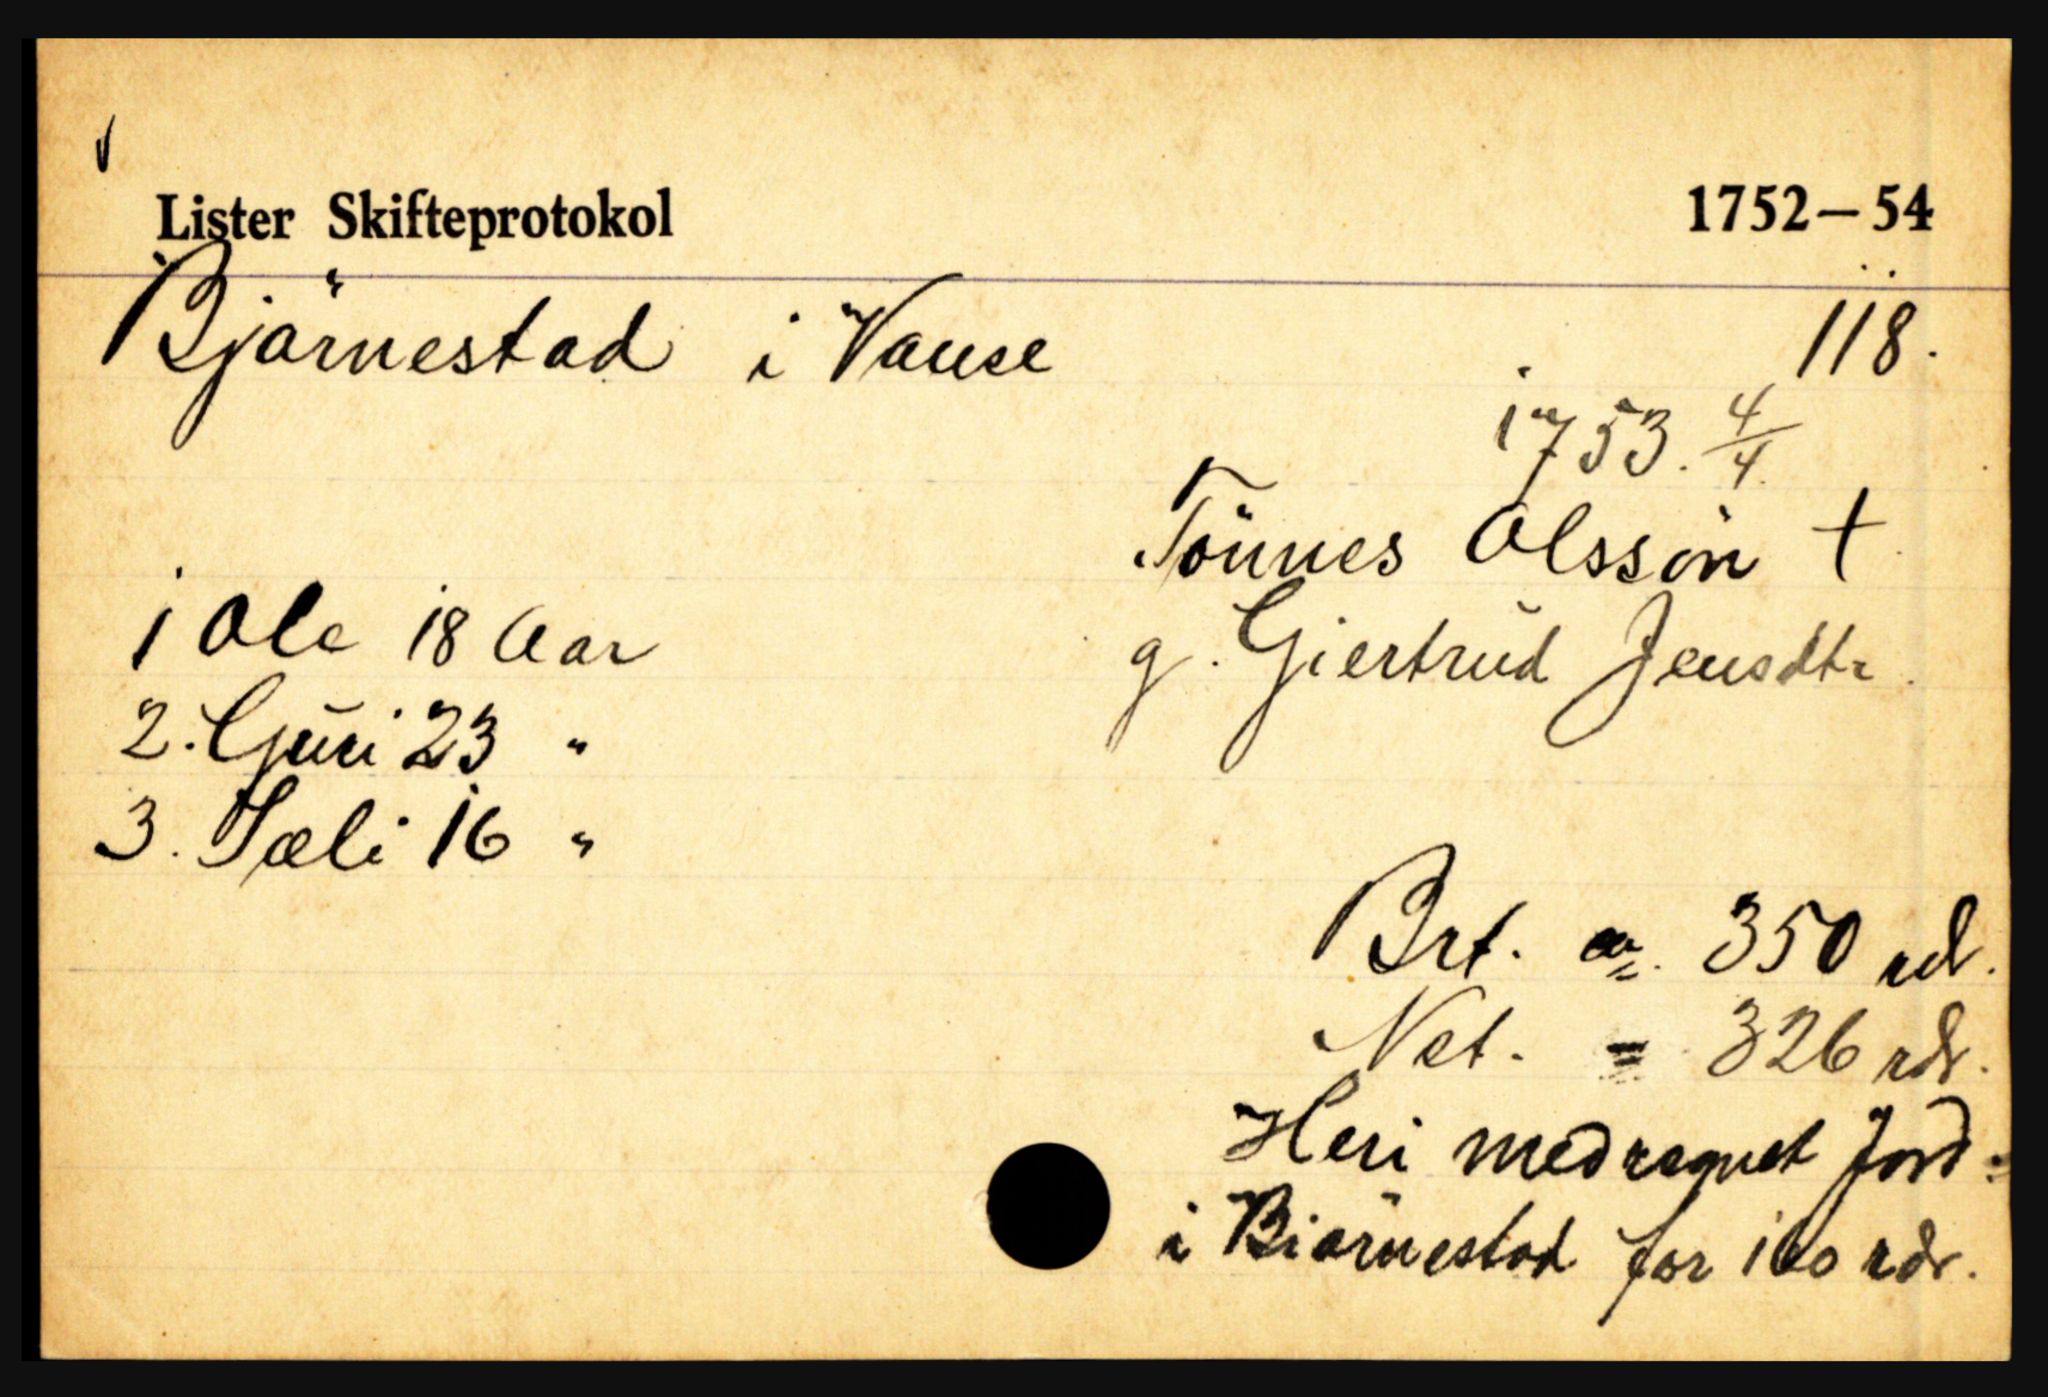 Lister Skifteprotokol 1752–54
Bjärnestad i Vanse 118.
1753. 4/4
Tönnes Olssøn †
g. Giertrud Jensdtr.
1 Ole 18 Aar
2. Guri 23 "
3. Sæli 16 "
Brt. = 350 rdl.
Net. = 326 rdr.
Heri medregnet Jord
i Biärnestad for 160 rdr.